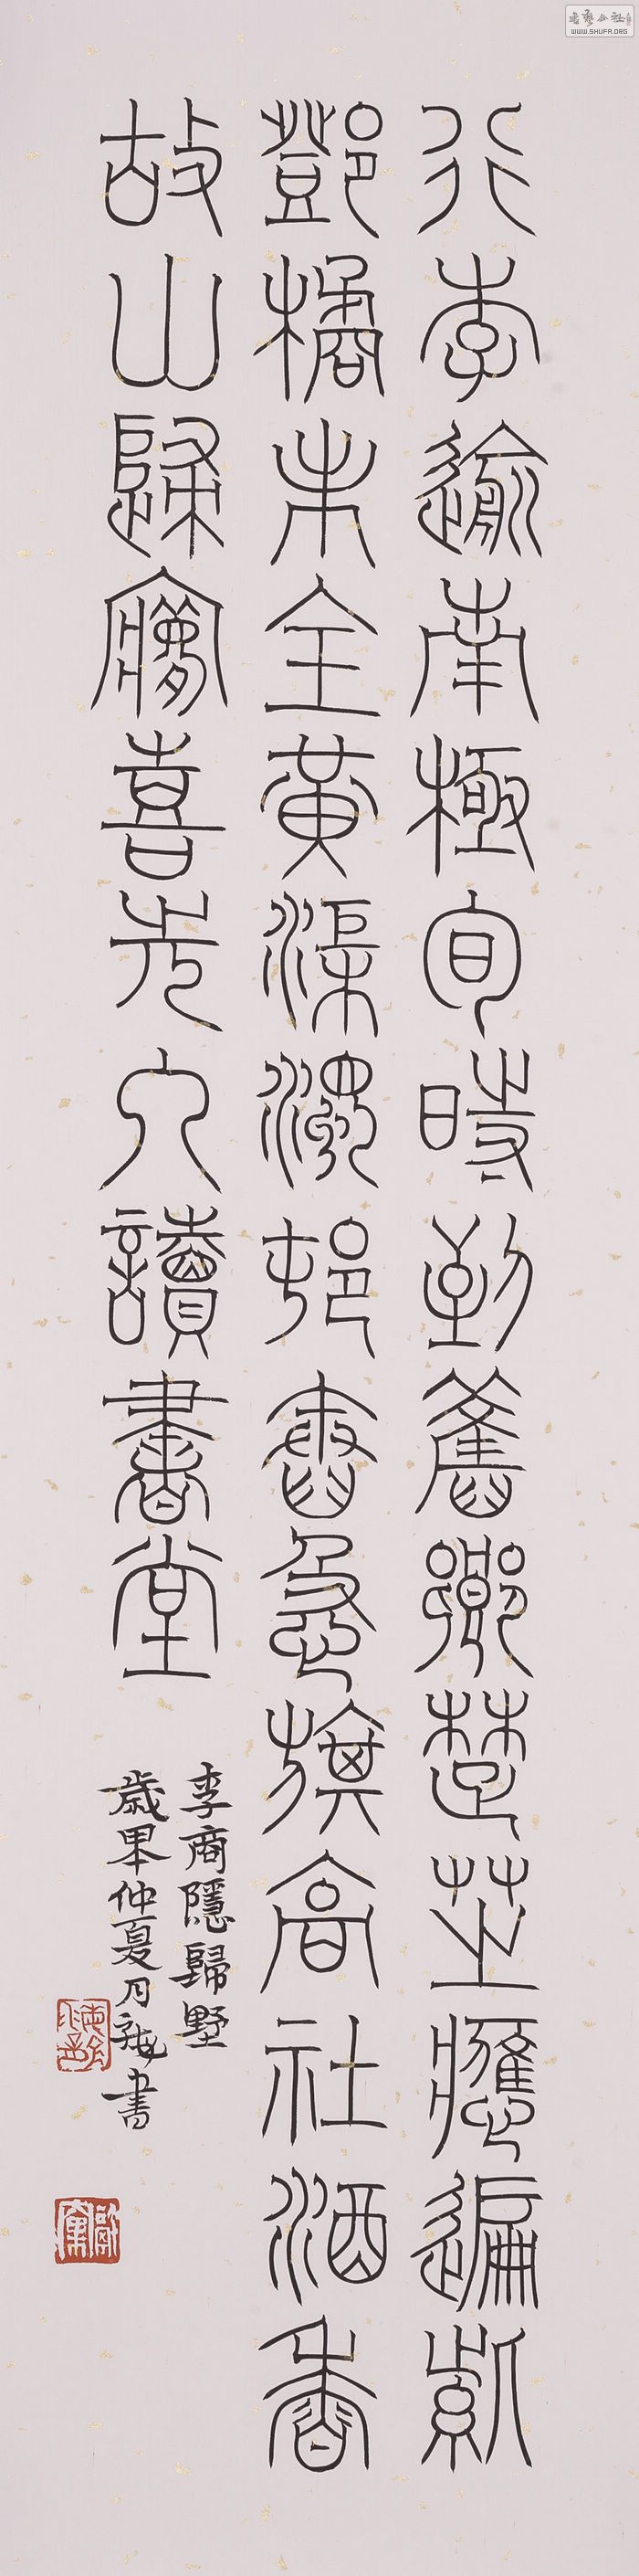 書藝公社
WWW.SHUFA.ORG
行李逾南極旬時到舊鄉楚芝應遍紫
鄧橘未全黃渠濁邨舂急旗高社酒香
故山歸寢喜先入讀書堂
李商隱歸墅
歲 仲夏月 書